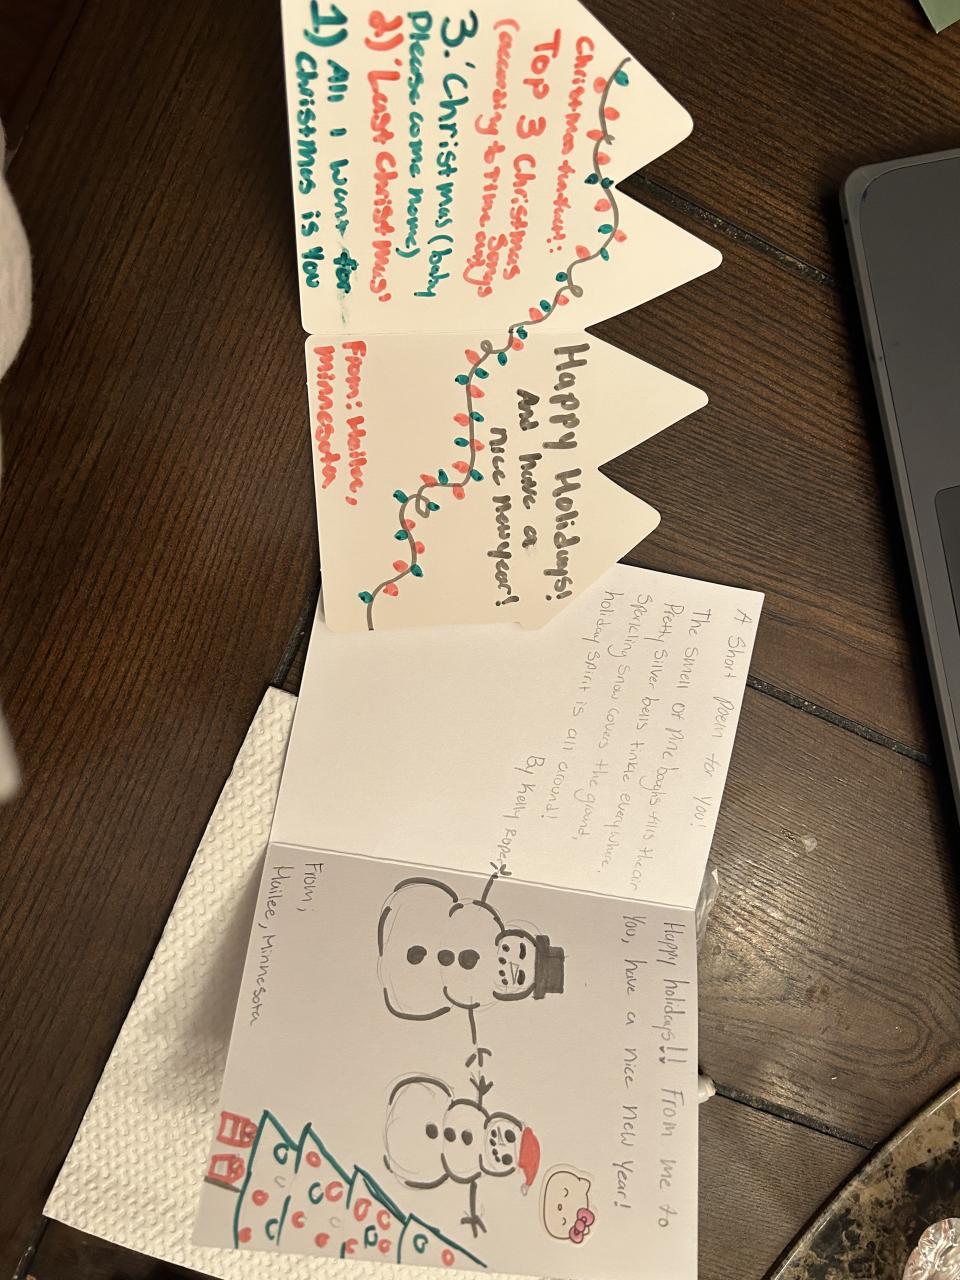 Christmas funfact:
Top 3 Christmas Songs
(according to time out)
3. 'Christmas (baby
Please come home)
2) 'Last Christmas'
1) All I want for
Christmas is You
Happy Holidays!
And have a
nice new year!
From: Mailee,
minnesota
A Short Poem for You!
The smell of Pine boughs fills the air
Pretty Silver bells tinkle everywhere.
Sparkling Snow covers the ground,
holiday Spirit is all around!
By Kelly Roper
Happy holidays!! From me to
You, have a nice new Year!
From;
Mailee, Minnesota